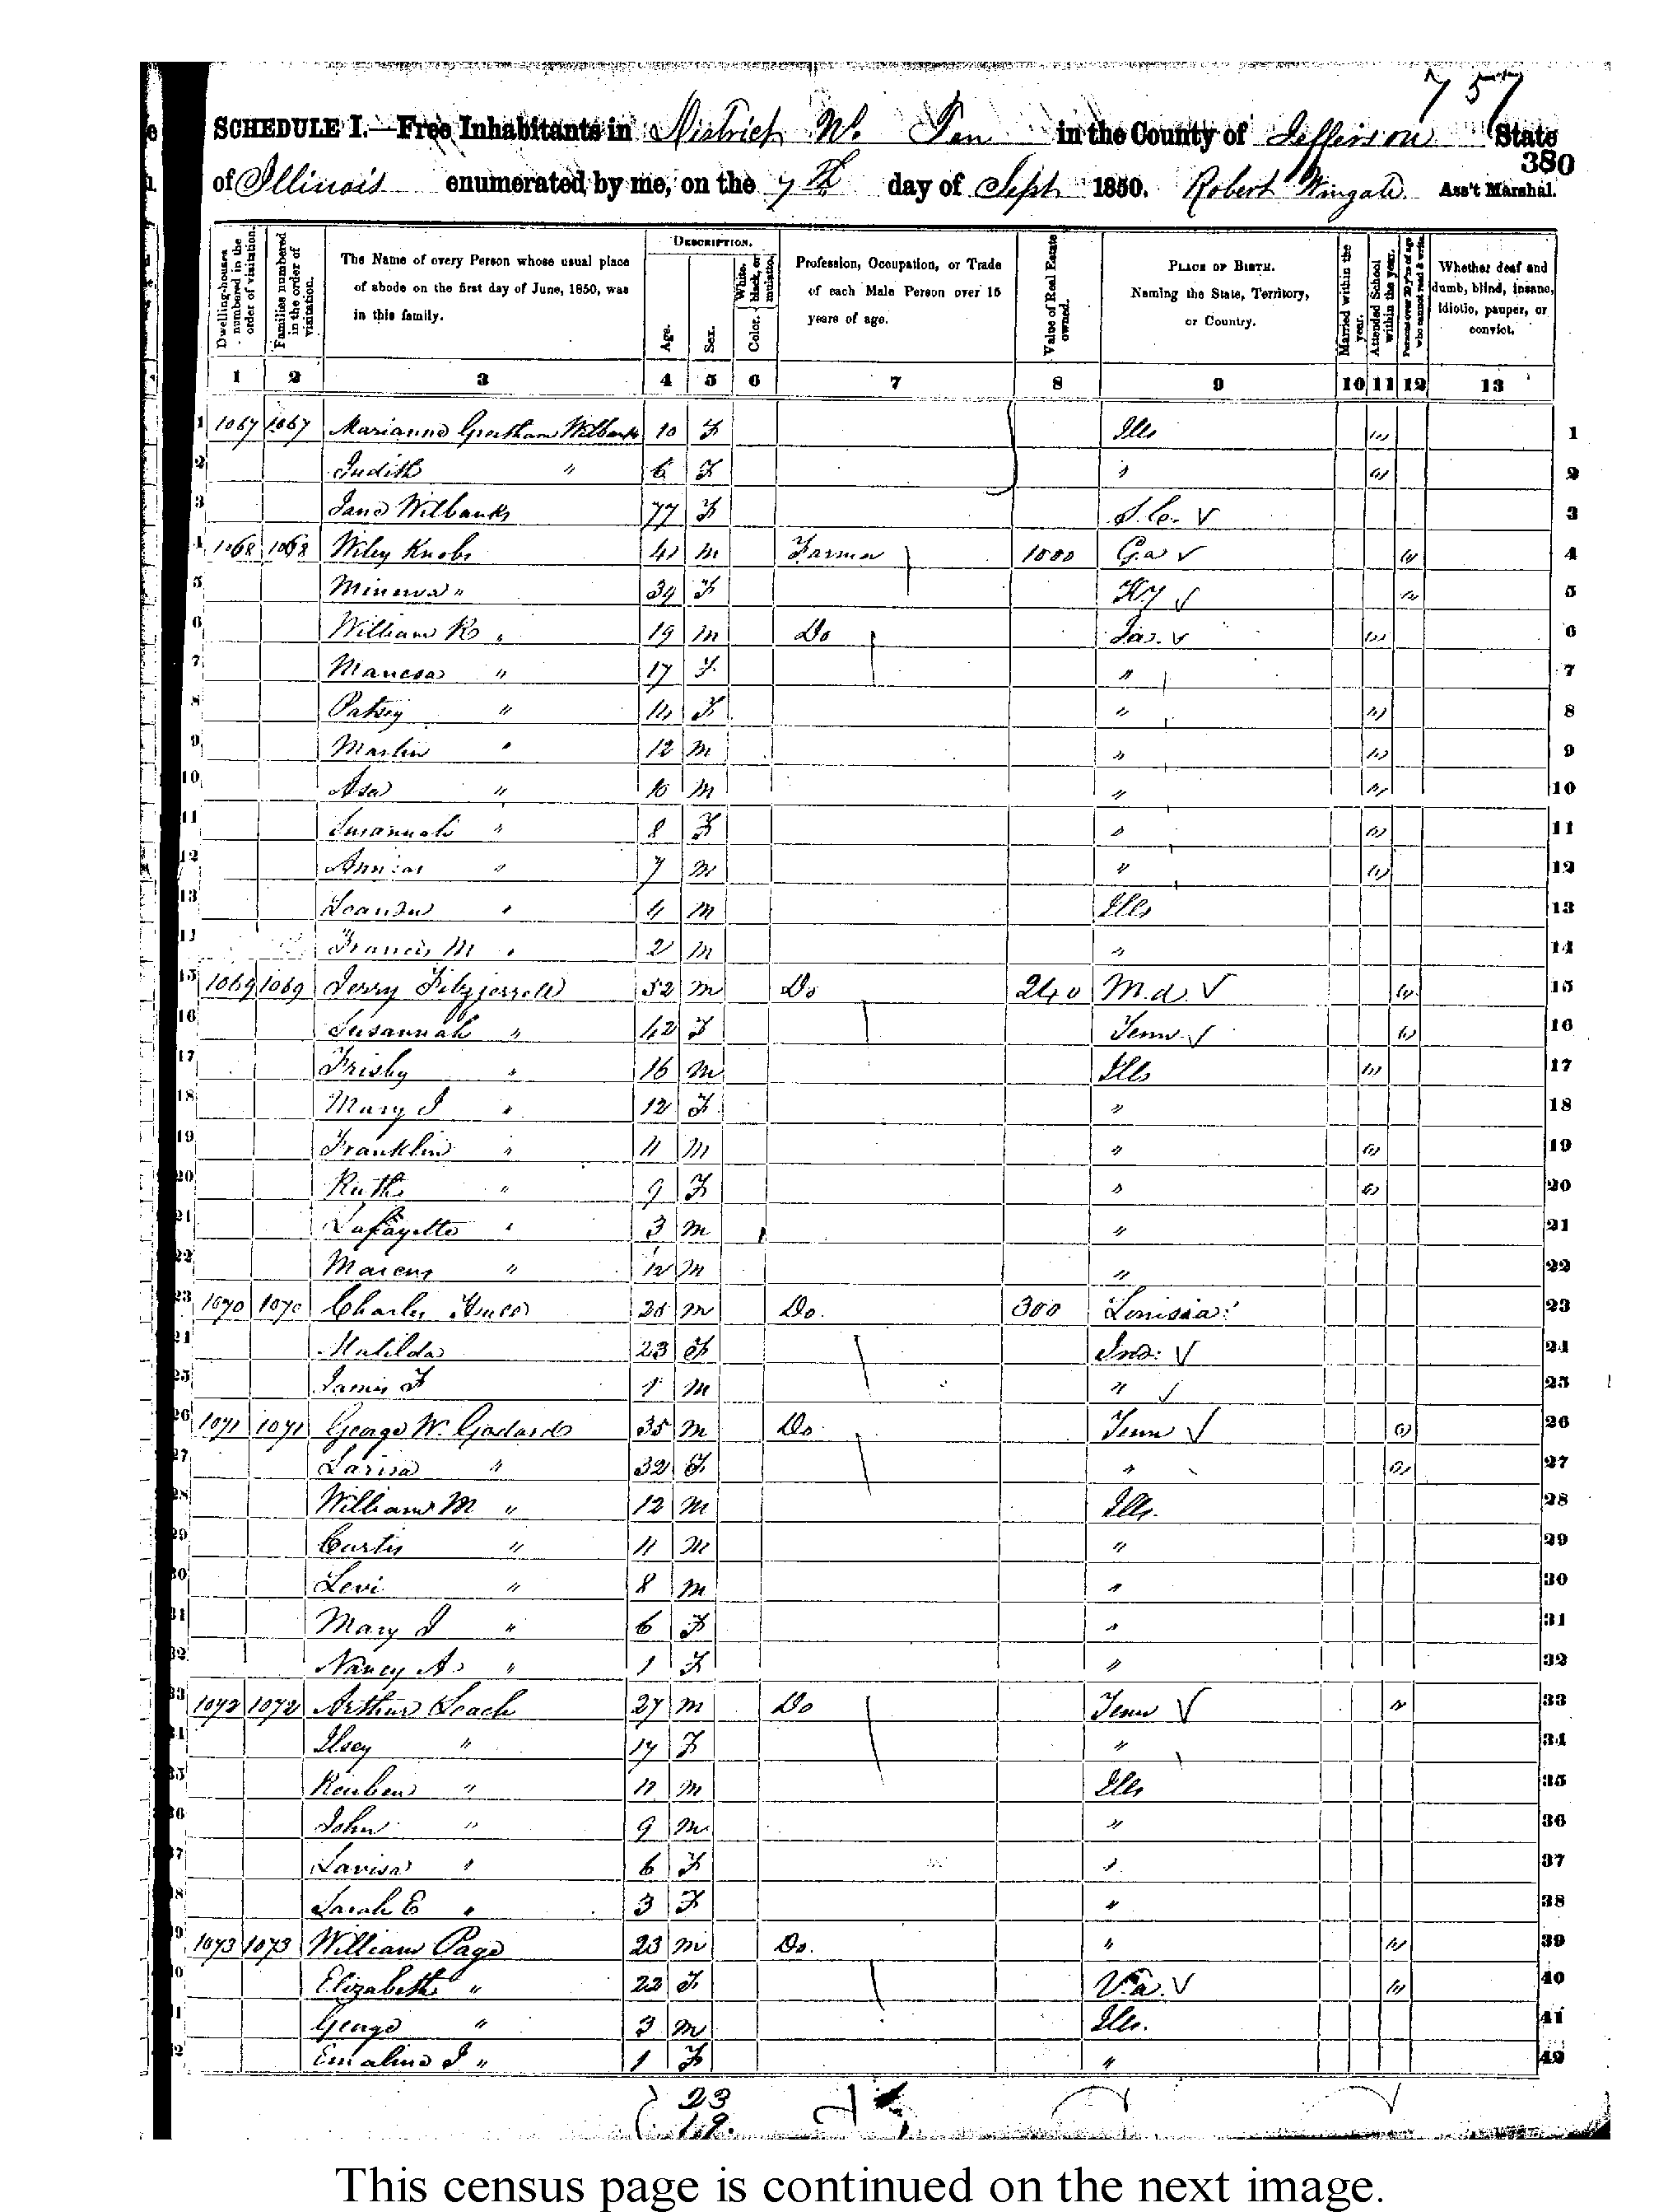 757
SCHEDULE I.—Free Inhabitants in District No. Ten in the County of Jefferson State
380
of Illinois enumerated by me, on the 7th day of Sept 1850. Robert Wingate Ass't Marshal.
Dwelling-houses numbered in the order of visitation.
Families numbered in the order of visitation.
The Name of every Person whose usual place of abode on the first day of June, 1850, was in this family.
DESCRIPTION.
Age.
Sex.
Color. White, black, or mulatto.
Profession, Occupation, or Trade of each Male Person over 15 years of age.
Value of Real Estate owned.
PLACE OF BIRTH. Naming the State, Territory, or Country.
Married within the year.
Attended School within the year.
Persons over 20 y'rs of age who cannot read & write.
Whether deaf and dumb, blind, insane, idiotic, pauper, or convict.
1 2 3 4 5 6 7 8 9 10 11 12 13
1 1067 1067 Marianna Wilbanks 10 F Ills " 1
2 Judith " 6 F " " 2
3 Jane Wilbanks 77 F S.C. V 3
4 1068 1068 Wiley Knobs 41 M Farmer 1000 Ga V " 4
5 Minerva " 39 F Ky V " 5
6 William R " 19 M Do Ia. V " 6
7 " 17 F " 7
8 Patsey " 14 F " " 8
9 Martin " 12 M " " 9
10 Asa " 10 M " " 10
11 Susannah " 8 F " " 11
12 " 7 M " " 12
13 Leander " 4 M Ills 13
14 Francis M " 2 M " 14
15 1069 1069 Jerry Fitzjerrell 52 M Do 240 M.d. V " 15
16 Susannah " 42 F Tenn. V " 16
17 Frisby " 16 M Ills " 17
18 Mary J " 12 F " 18
19 Franklin " 11 M " " 19
20 Ruth " 9 F " " 20
21 Lafayette " 3 M " 21
22 Marcus " M " 22
23 1070 1070 Charles M Do. 300 Louisia 23
24 Matilda 23 F Ind: V 24
25 James F 1 M " V 25
26 1071 1071 George W. Godard 35 M Do Tenn V " 26
27 Larisa " 32 F " " 27
28 William M " 12 M Ills. 28
29 Curtis " 11 M " 29
30 Levi " 8 M " 30
31 Mary J " 6 F " 31
32 Nancy A. " 1 F " 32
33 1072 1072 Arthur Leach 27 M Do Tenn V " 33
34 Ilsey " F " 34
35 Reuben " 11 M Ills 35
36 John " 9 M " 36
37 Lavisa " 6 F " 37
38 Sarah E " 3 F " 38
39 1073 1073 William Page 23 M Do. " " 39
40 Elizabeth " 22 F V.a. V " 40
41 George " 3 M Ills. 41
42 Emaline J " 1 F " 42
23
19.
This census page is continued on the next image.